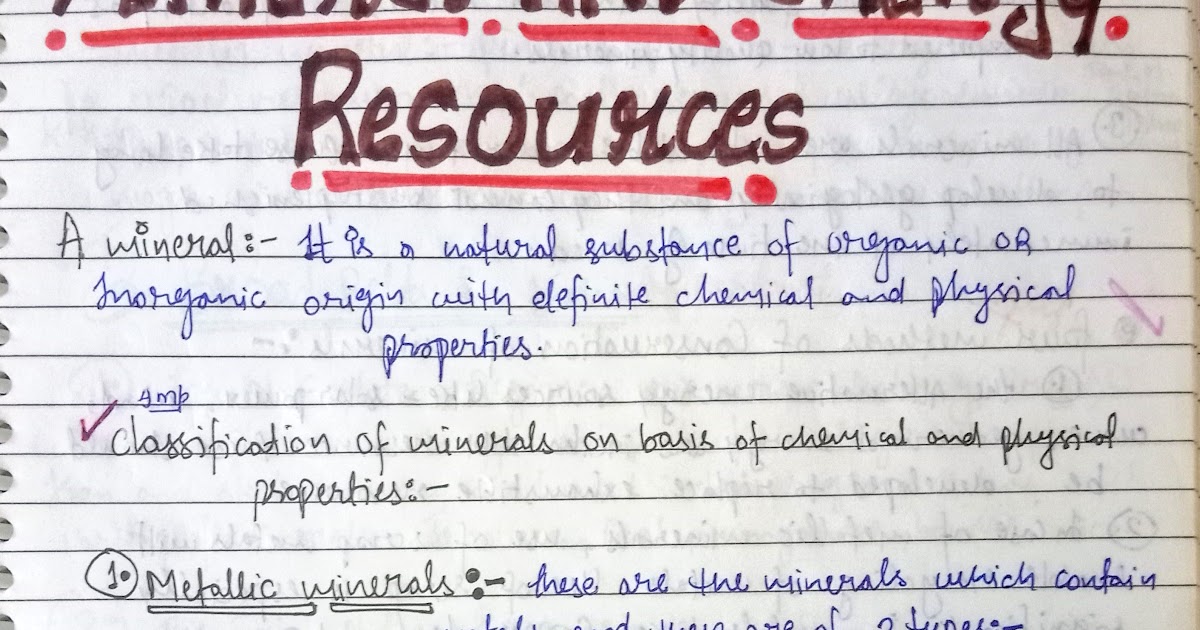 Resources
A mineral:- It is a natural substance of organic OR
Inorganic origin with definite chemical and physical
properties.
Imp
Classification of minerals on basis of chemical and physical
properties:-
1. Metallic minerals:- these are the minerals which contain